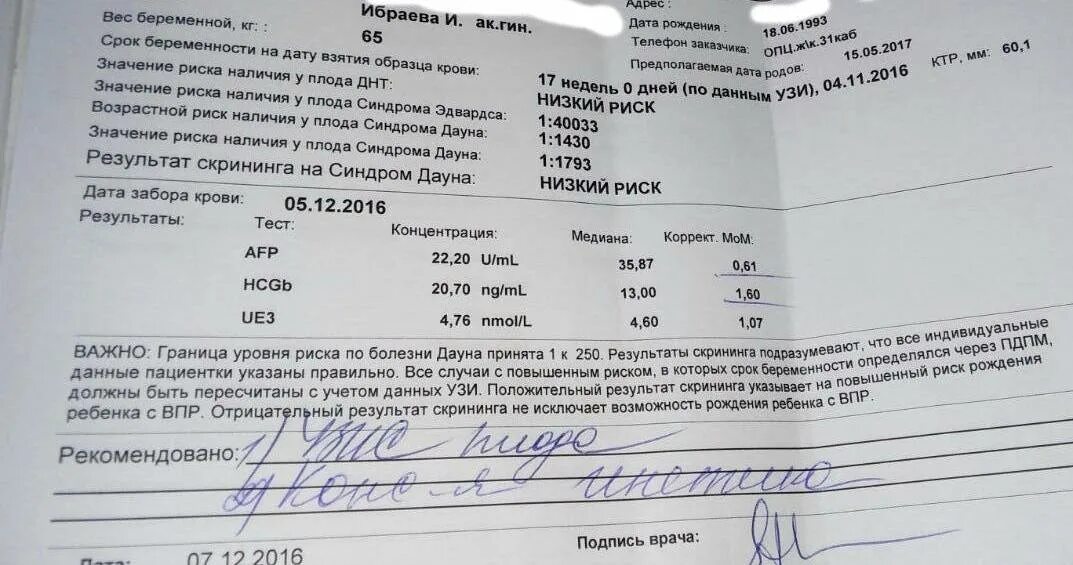 Ибраева И. ак.гин.
Адрес :
Вес беременной, кг: : 65
Дата рождения : 18.06.1993
Срок беременности на дату взятия образца крови: 17 недель 0 дней (по данным УЗИ), 04.11.2016 КТР, мм: 60,1
Телефон заказчика: ОПЦ.ж\к.31каб
Предполагаемая дата родов: 15.05.2017
Значение риска наличия у плода ДНТ: НИЗКИЙ РИСК
Значение риска наличия у плода Синдрома Эдвардса: 1:40033
Возрастной риск наличия у плода Синдрома Дауна: 1:1430
Значение риска наличия у плода Синдрома Дауна: 1:1793
Результат скрининга на Синдром Дауна: НИЗКИЙ РИСК
Дата забора крови: 05.12.2016
Результаты: Тест: Концентрация: Медиана: Коррект. МоМ:
AFP 22,20 U/mL 35,87 0,61
HCGb 20,70 ng/mL 13,00 1,60
UE3 4,76 nmol/L 4,60 1,07
ВАЖНО: Граница уровня риска по болезни Дауна принята 1 к 250. Результаты скрининга подразумевают, что все индивидуальные
данные пациентки указаны правильно. Все случаи с повышенным риском, в которых срок беременности определялся через ПДПМ,
должны быть пересчитаны с учетом данных УЗИ. Положительный результат скрининга указывает на повышенный риск рождения
ребенка с ВПР. Отрицательный результат скрининга не исключает возможность рождения ребенка с ВПР.
Рекомендовано: 1) плода
2) Конс-я
Подпись врача:
Дата: 07.12.2016